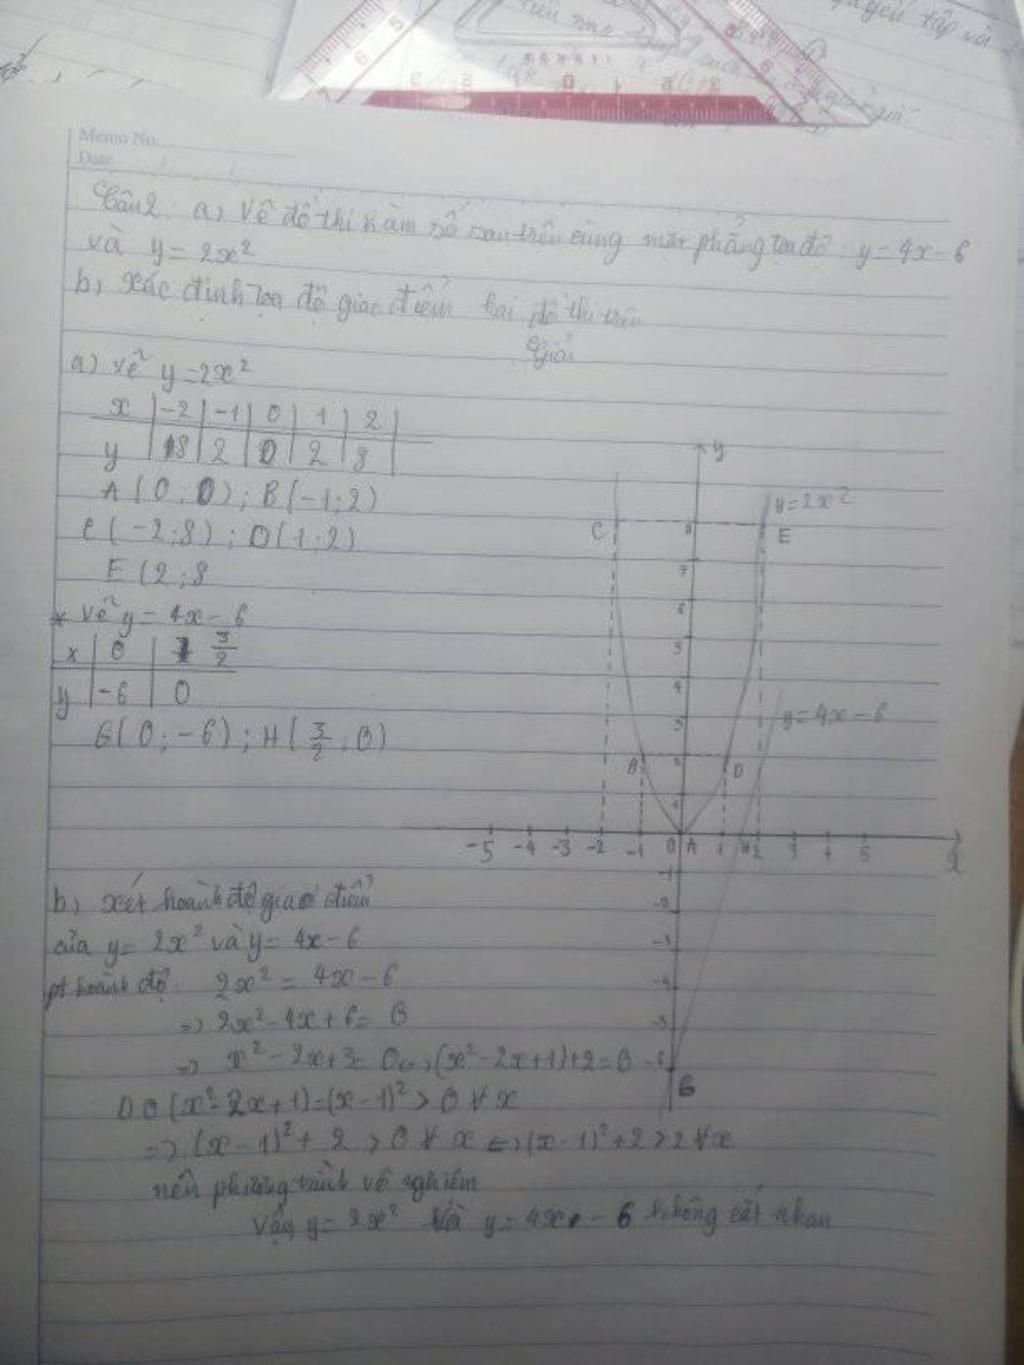 Memo No.
Date / /
Câu 2: a) Vẽ đồ thị hàm số sau trên cùng mặt phẳng tọa độ y = 4x - 6
và y = 2x²
b) Xác định tọa độ giao điểm hai đồ thị trên
Giải
a) Vẽ y = 2x²
x | -2 | -1 | 0 | 1 | 2
y | 8 | 2 | 0 | 2 | 8
A (0 ; 0) ; B (-1 ; 2)
C (-2 ; 8) ; D (1 ; 2)
E (2 ; 8
* Vẽ y = 4x - 6
x | 0 | 3/2
y | -6 | 0
G (0 ; -6) ; H (3/2 ; 0)
y
y = 2x²
C 8 E
7
6
5
4
3 y = 4x - 6
B 2 D
1
-5 -4 -3 -2 -1 0 A 1 H 2 3 4 5 x
-1
-2
-3
-4
-5
-6
G
b) Xét hoành độ giao điểm
của y = 2x² và y = 4x - 6
pt hoành độ: 2x² = 4x - 6
=> 2x² - 4x + 6 = 0
=> x² - 2x + 3 = 0 <=> (x² - 2x + 1) + 2 = 0
Do (x² - 2x + 1) = (x - 1)² > 0 ∀ x
=> (x - 1)² + 2 > 0 ∀ x <=> (x - 1)² + 2 > 2 ∀ x
nên phương trình vô nghiệm
Vậy y = 2x² và y = 4x - 6 không cắt nhau